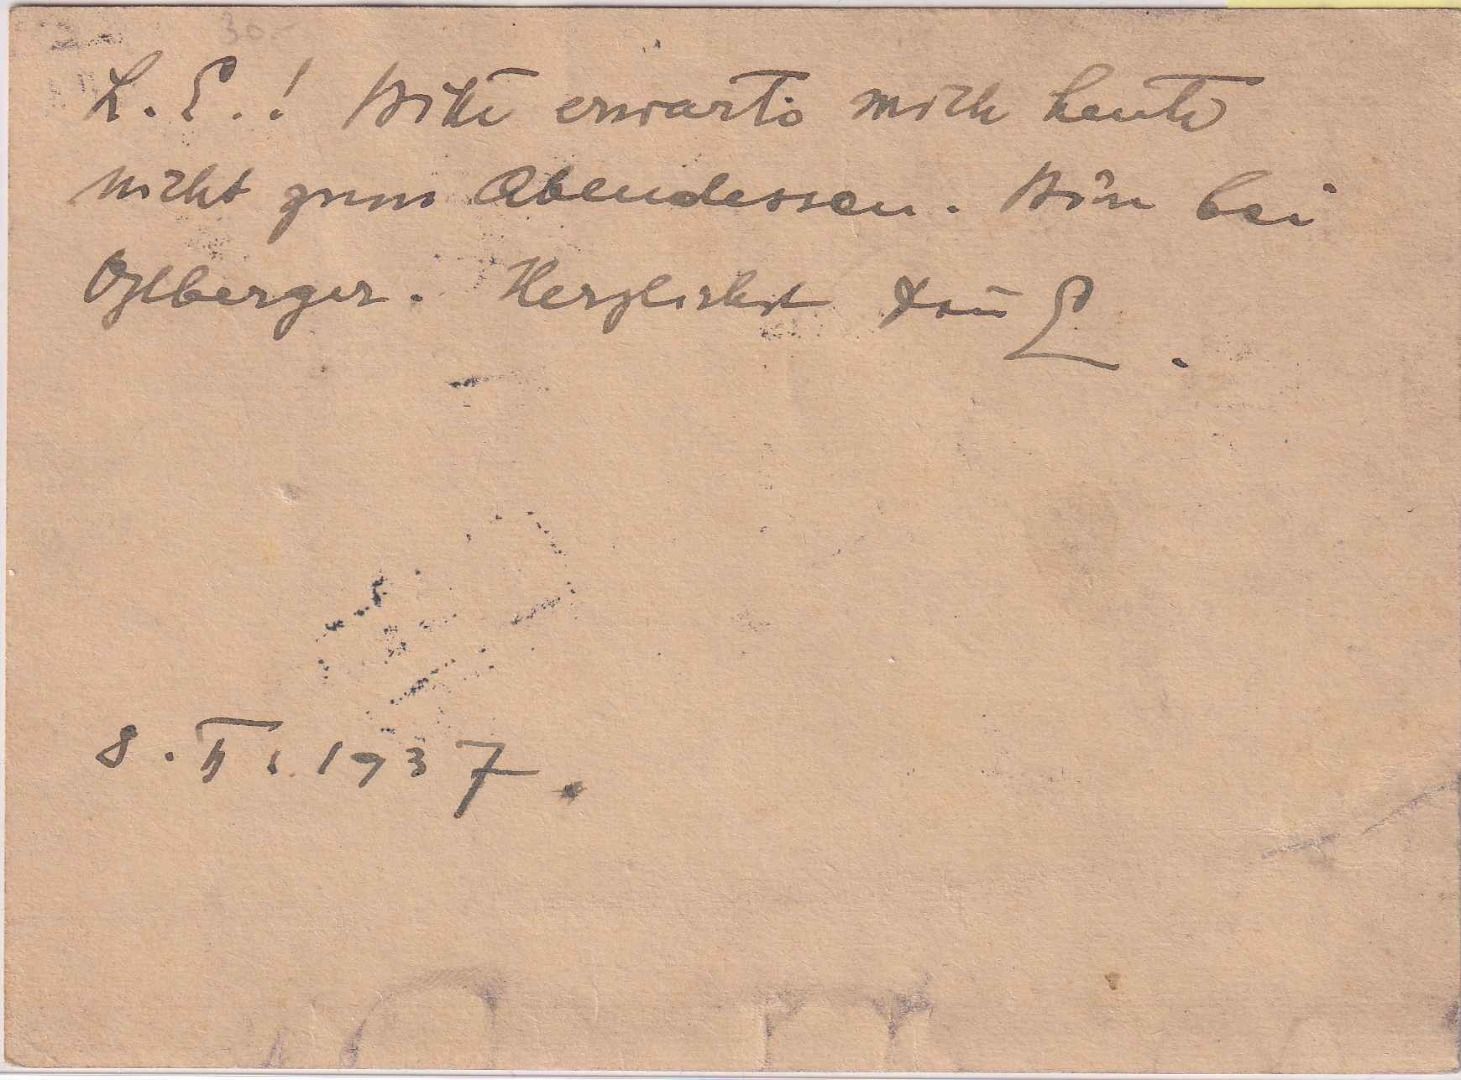 30.-
L. E.! Bitte erwarte mich heute
nicht zum Abendessen. Bin bei
Herzlichst Dein E.
8. II. 1937.